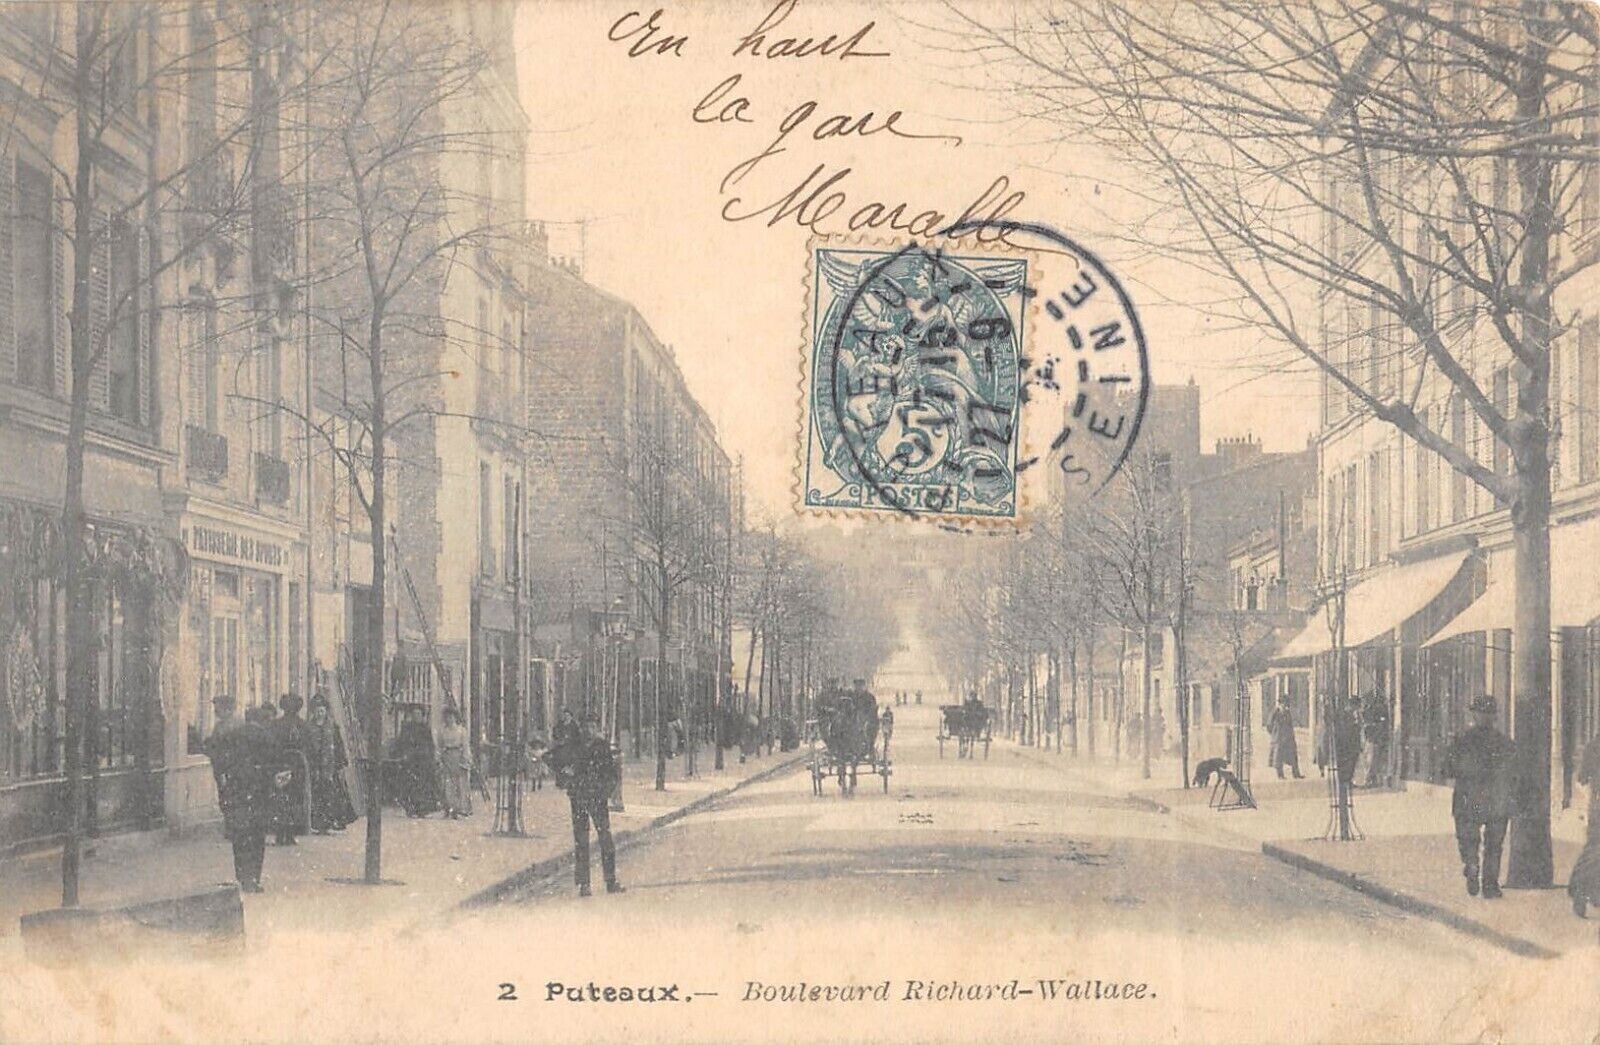 En haut
la gare
Maralle
PUTEAUX
SEINE
15
27 -9
5
POSTES
PATISSERIE DES
2 Puteaux.— Boulevard Richard-Wallace.